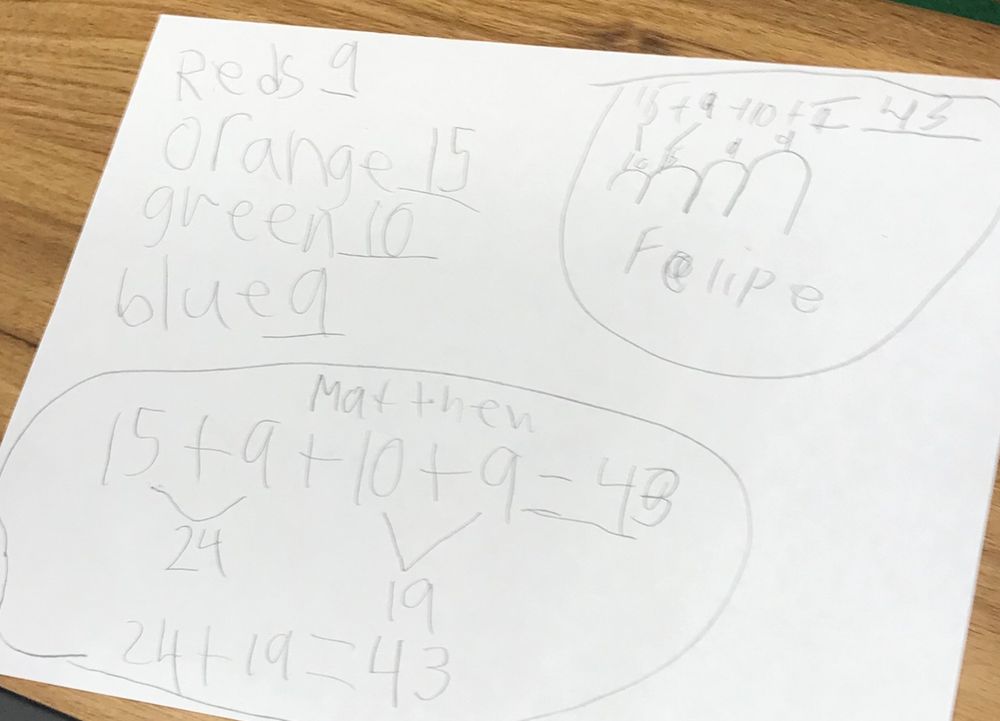 Reds 9
orange 15
green 10
blue 9
15 + 9 + 10 + 9 = 43
10 15 9 9
Felipe
Matthew
15 + 9 + 10 + 9 = 43
24
19
24 + 19 = 43